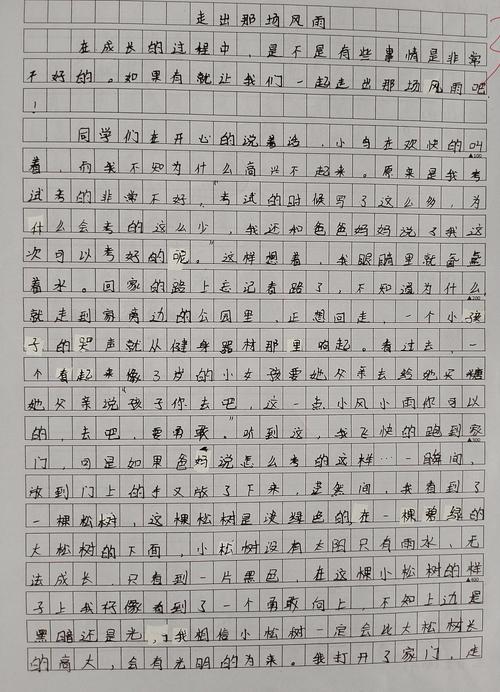 走出那场风雨
在成长的过程中，是不是有些事情是非常
不好的。如果有就让我们一起走出那场风雨吧
！
同学们在开心的说着话，小鸟在欢快的叫
着，而我不知为什么高兴不起来。原来是我考
试考的非常不好，“考试的时候写了这么多，为
什么会考的这么少，我还和爸爸妈妈说了我这
次可以考好的呢。”这样想着，我眼睛里就含
着水。回家的路上忘记看路了，不知道为什么
就走到家旁边的公园里，正想回走，一个小孩
子的哭声就从健身器材那里响起。看过去，一
个看起来像了岁的小女孩要她父亲去给她买糖
她父亲说“孩子你去吧，这一点小风小雨你可以
的，去吧，要勇敢。”听到这，我飞快的跑到家
门，可是如果爸妈说怎么考的这样…一瞬间，
放到门上的手又放了下来，忽然间，我看到了
一棵松树，这棵松树是淡绿色的在一棵碧绿的
大松树的下面，小松树没有太阳只有雨水、无
法成长，只看到一片黑色，在这棵小松树的样
子上我好像看到了一个勇敢向上，不知上边是
黑暗还是光，我相信小松树一定会比大松树长
的高大，会有光明的为来。我打开了家门，走